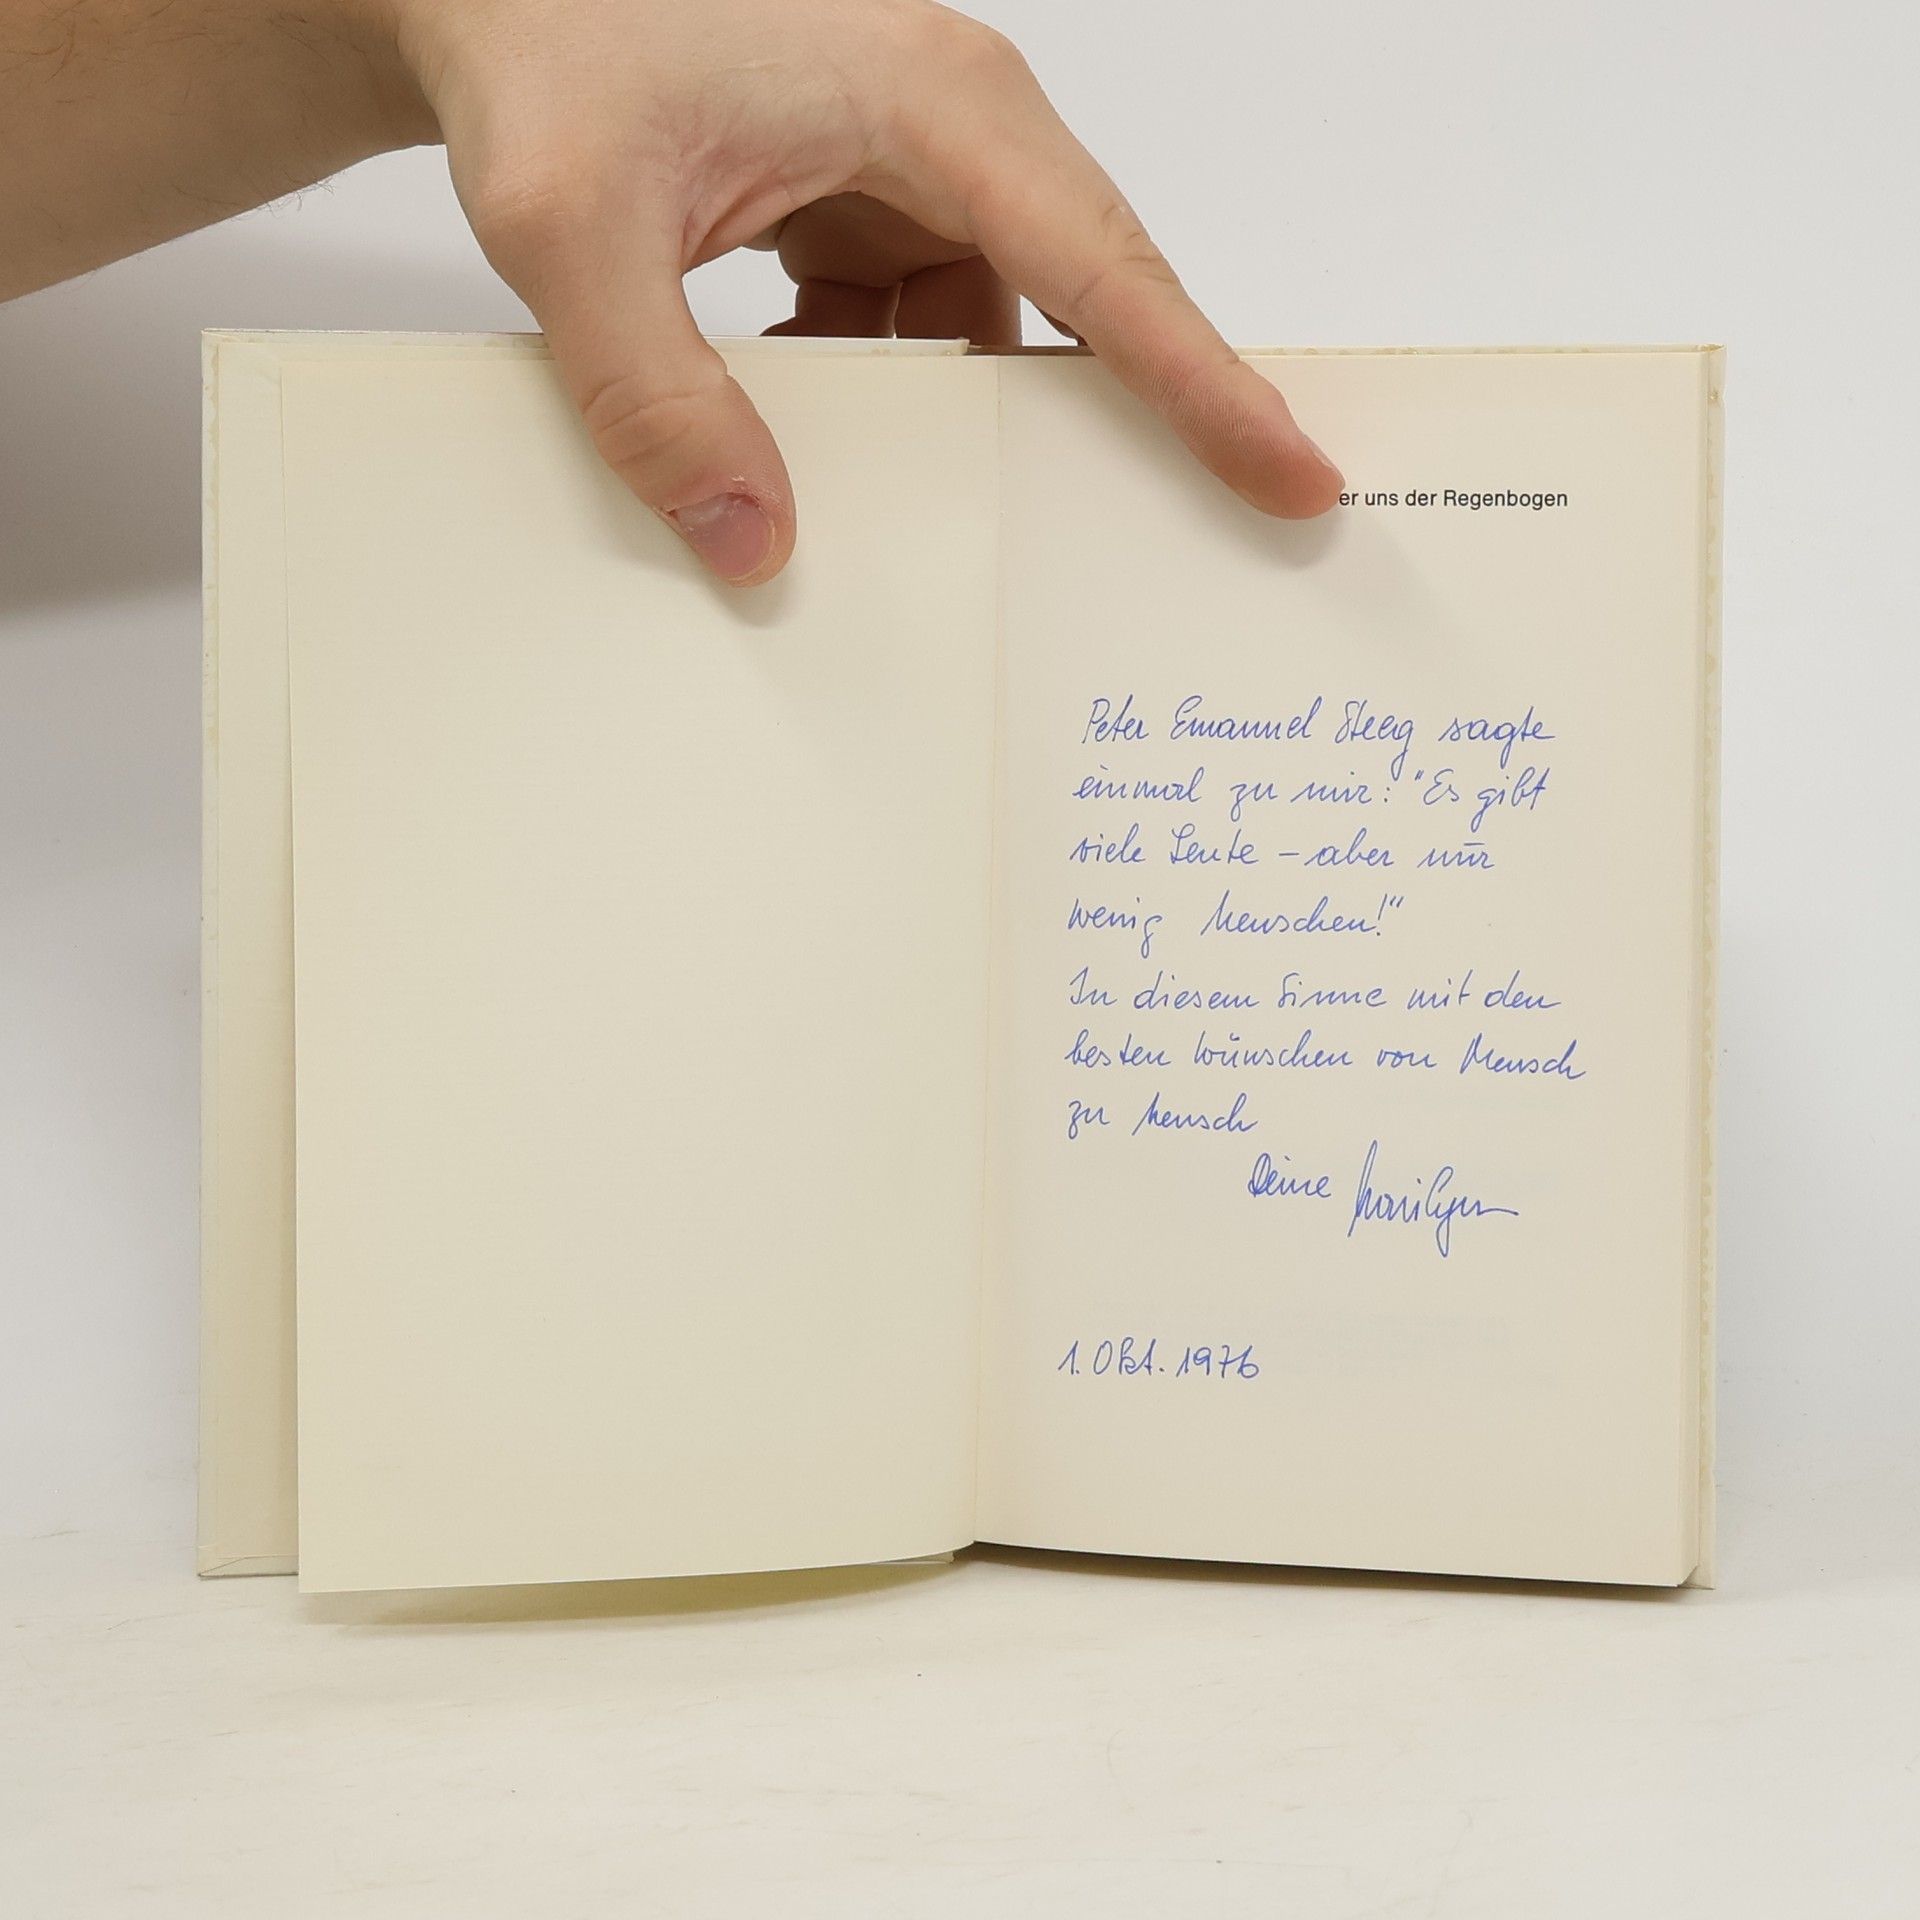 er uns der Regenbogen
Peter Emanuel Steeg sagte
einmal zu mir: "Es gibt
viele Leute – aber nur
wenig Menschen!"
In diesem Sinne mit den
besten Wünschen von Mensch
zu Mensch
Deine Marilyn
1. Okt. 1976